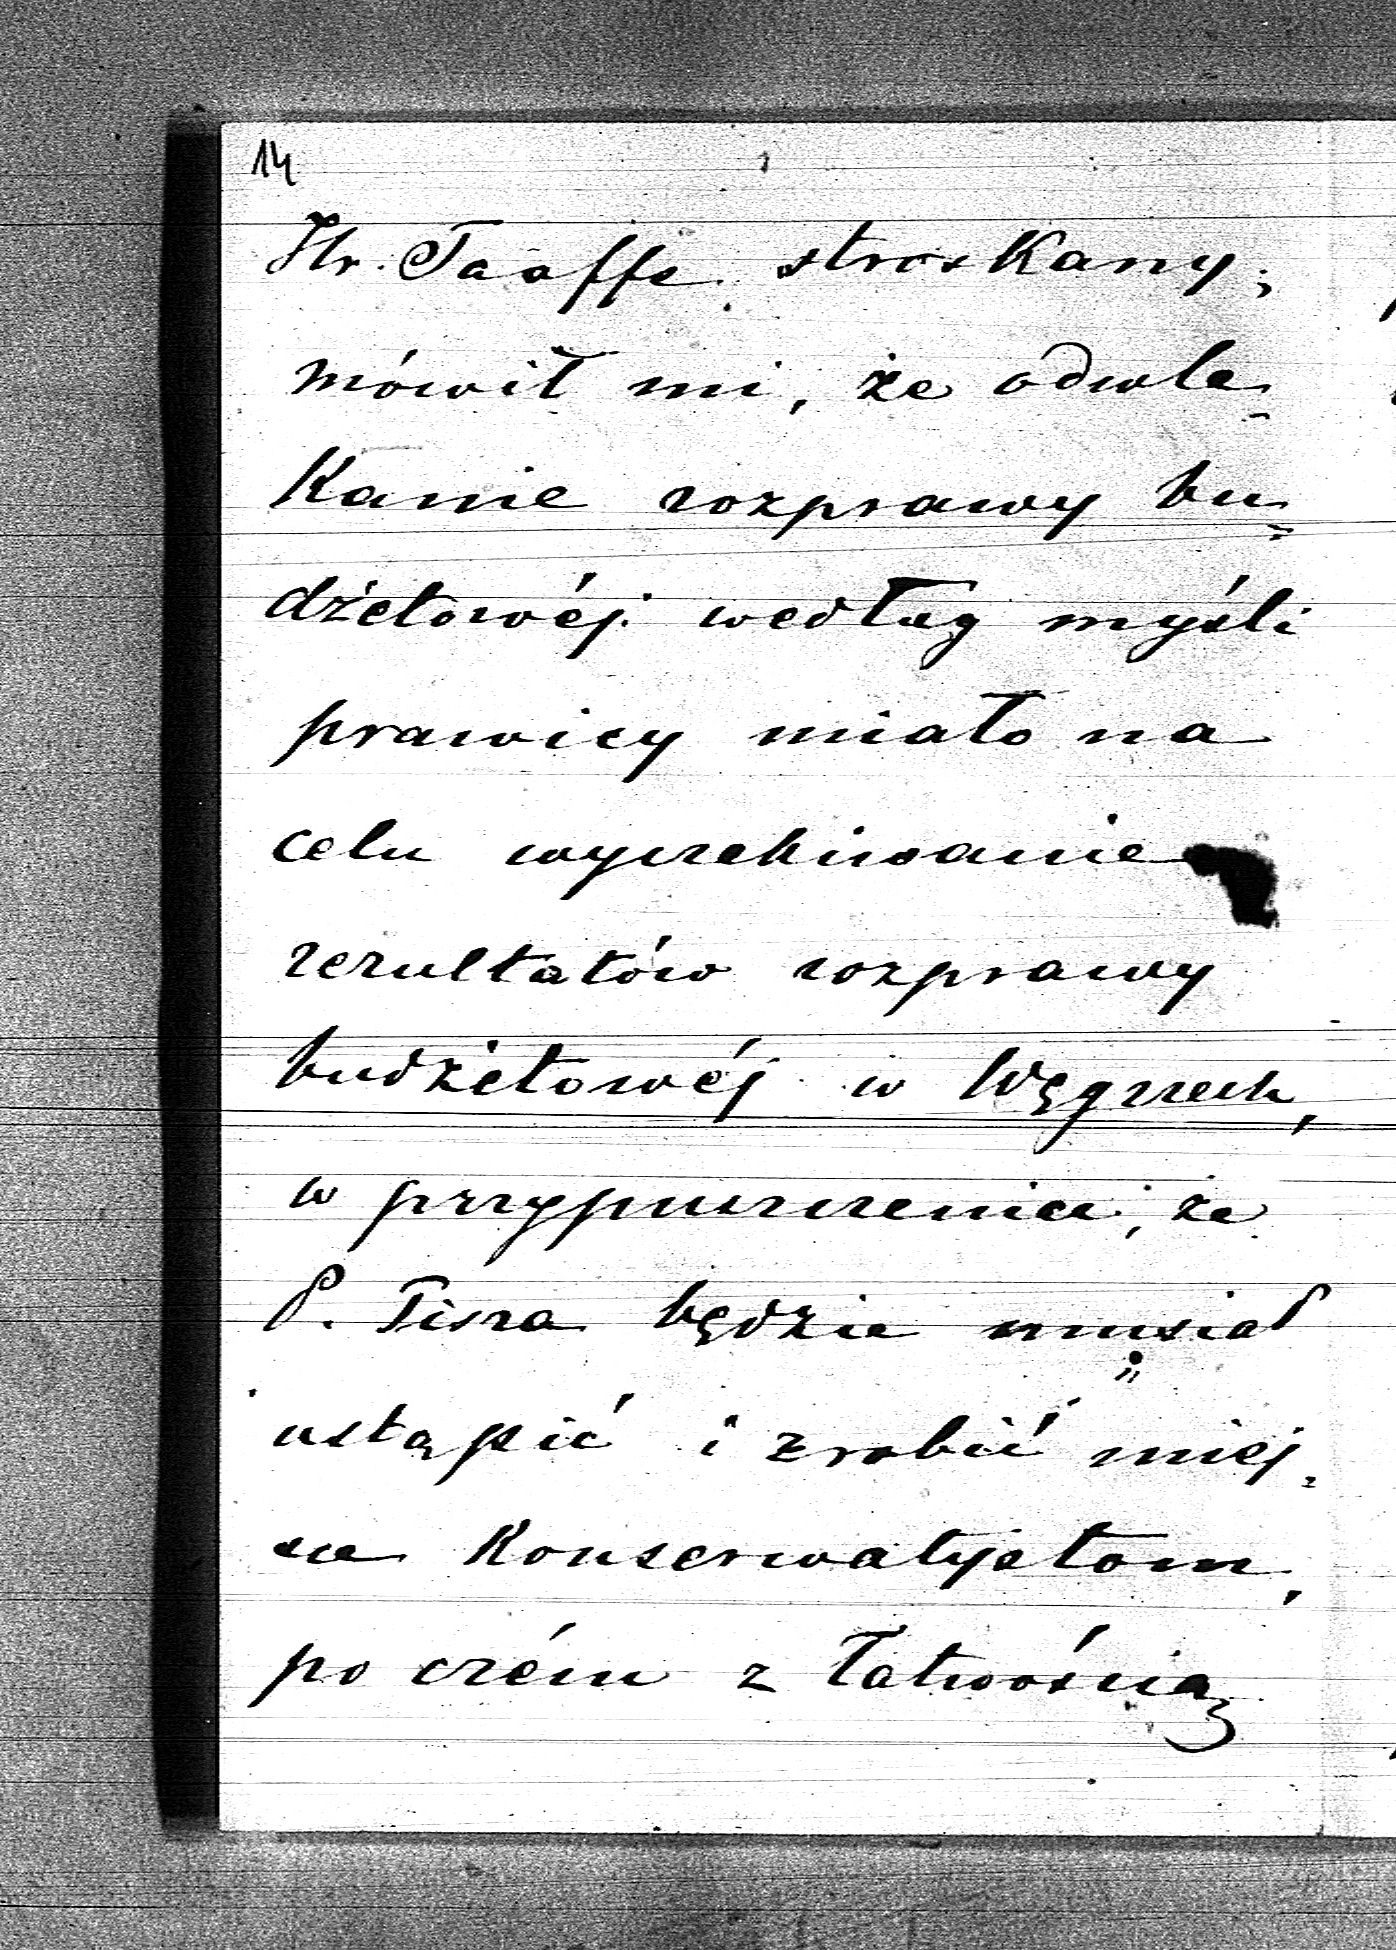 14
Hr. Taaffe stroskany;
mówił mi, że odwle-
kanie rozprawy bu-
dżetowéj według myśli
prawicy miało na
celu wyczekiwanie
rezultatów rozprawy
budżetowéj w Węgrzech,
w przypuszczeniu, że
P. Tisza będzie musiał
ustąpić i zrobić miej-
sce Konserwatystom,
po czém z łatwością